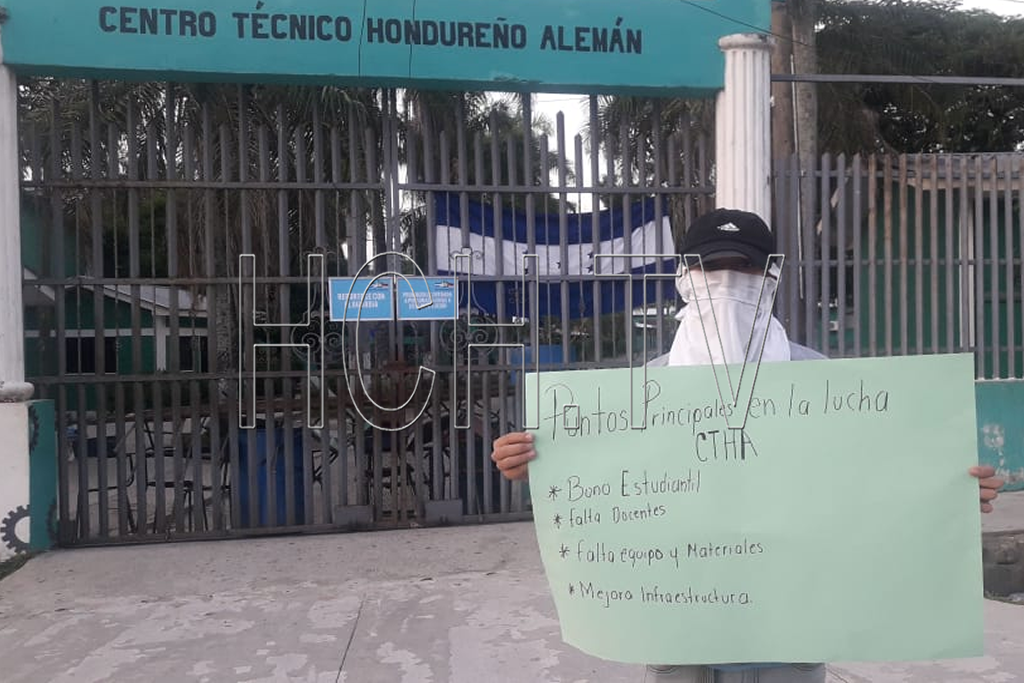 CENTRO TÉCNICO HONDUREÑO ALEMÁN
REPORTESE CON
EL GUARDIA
HCH TV
Puntos Principales en la lucha
CTHA
* Bono Estudiantil
* falta Docentes
* falta equipo y Materiales
* Mejora Infraestructura.